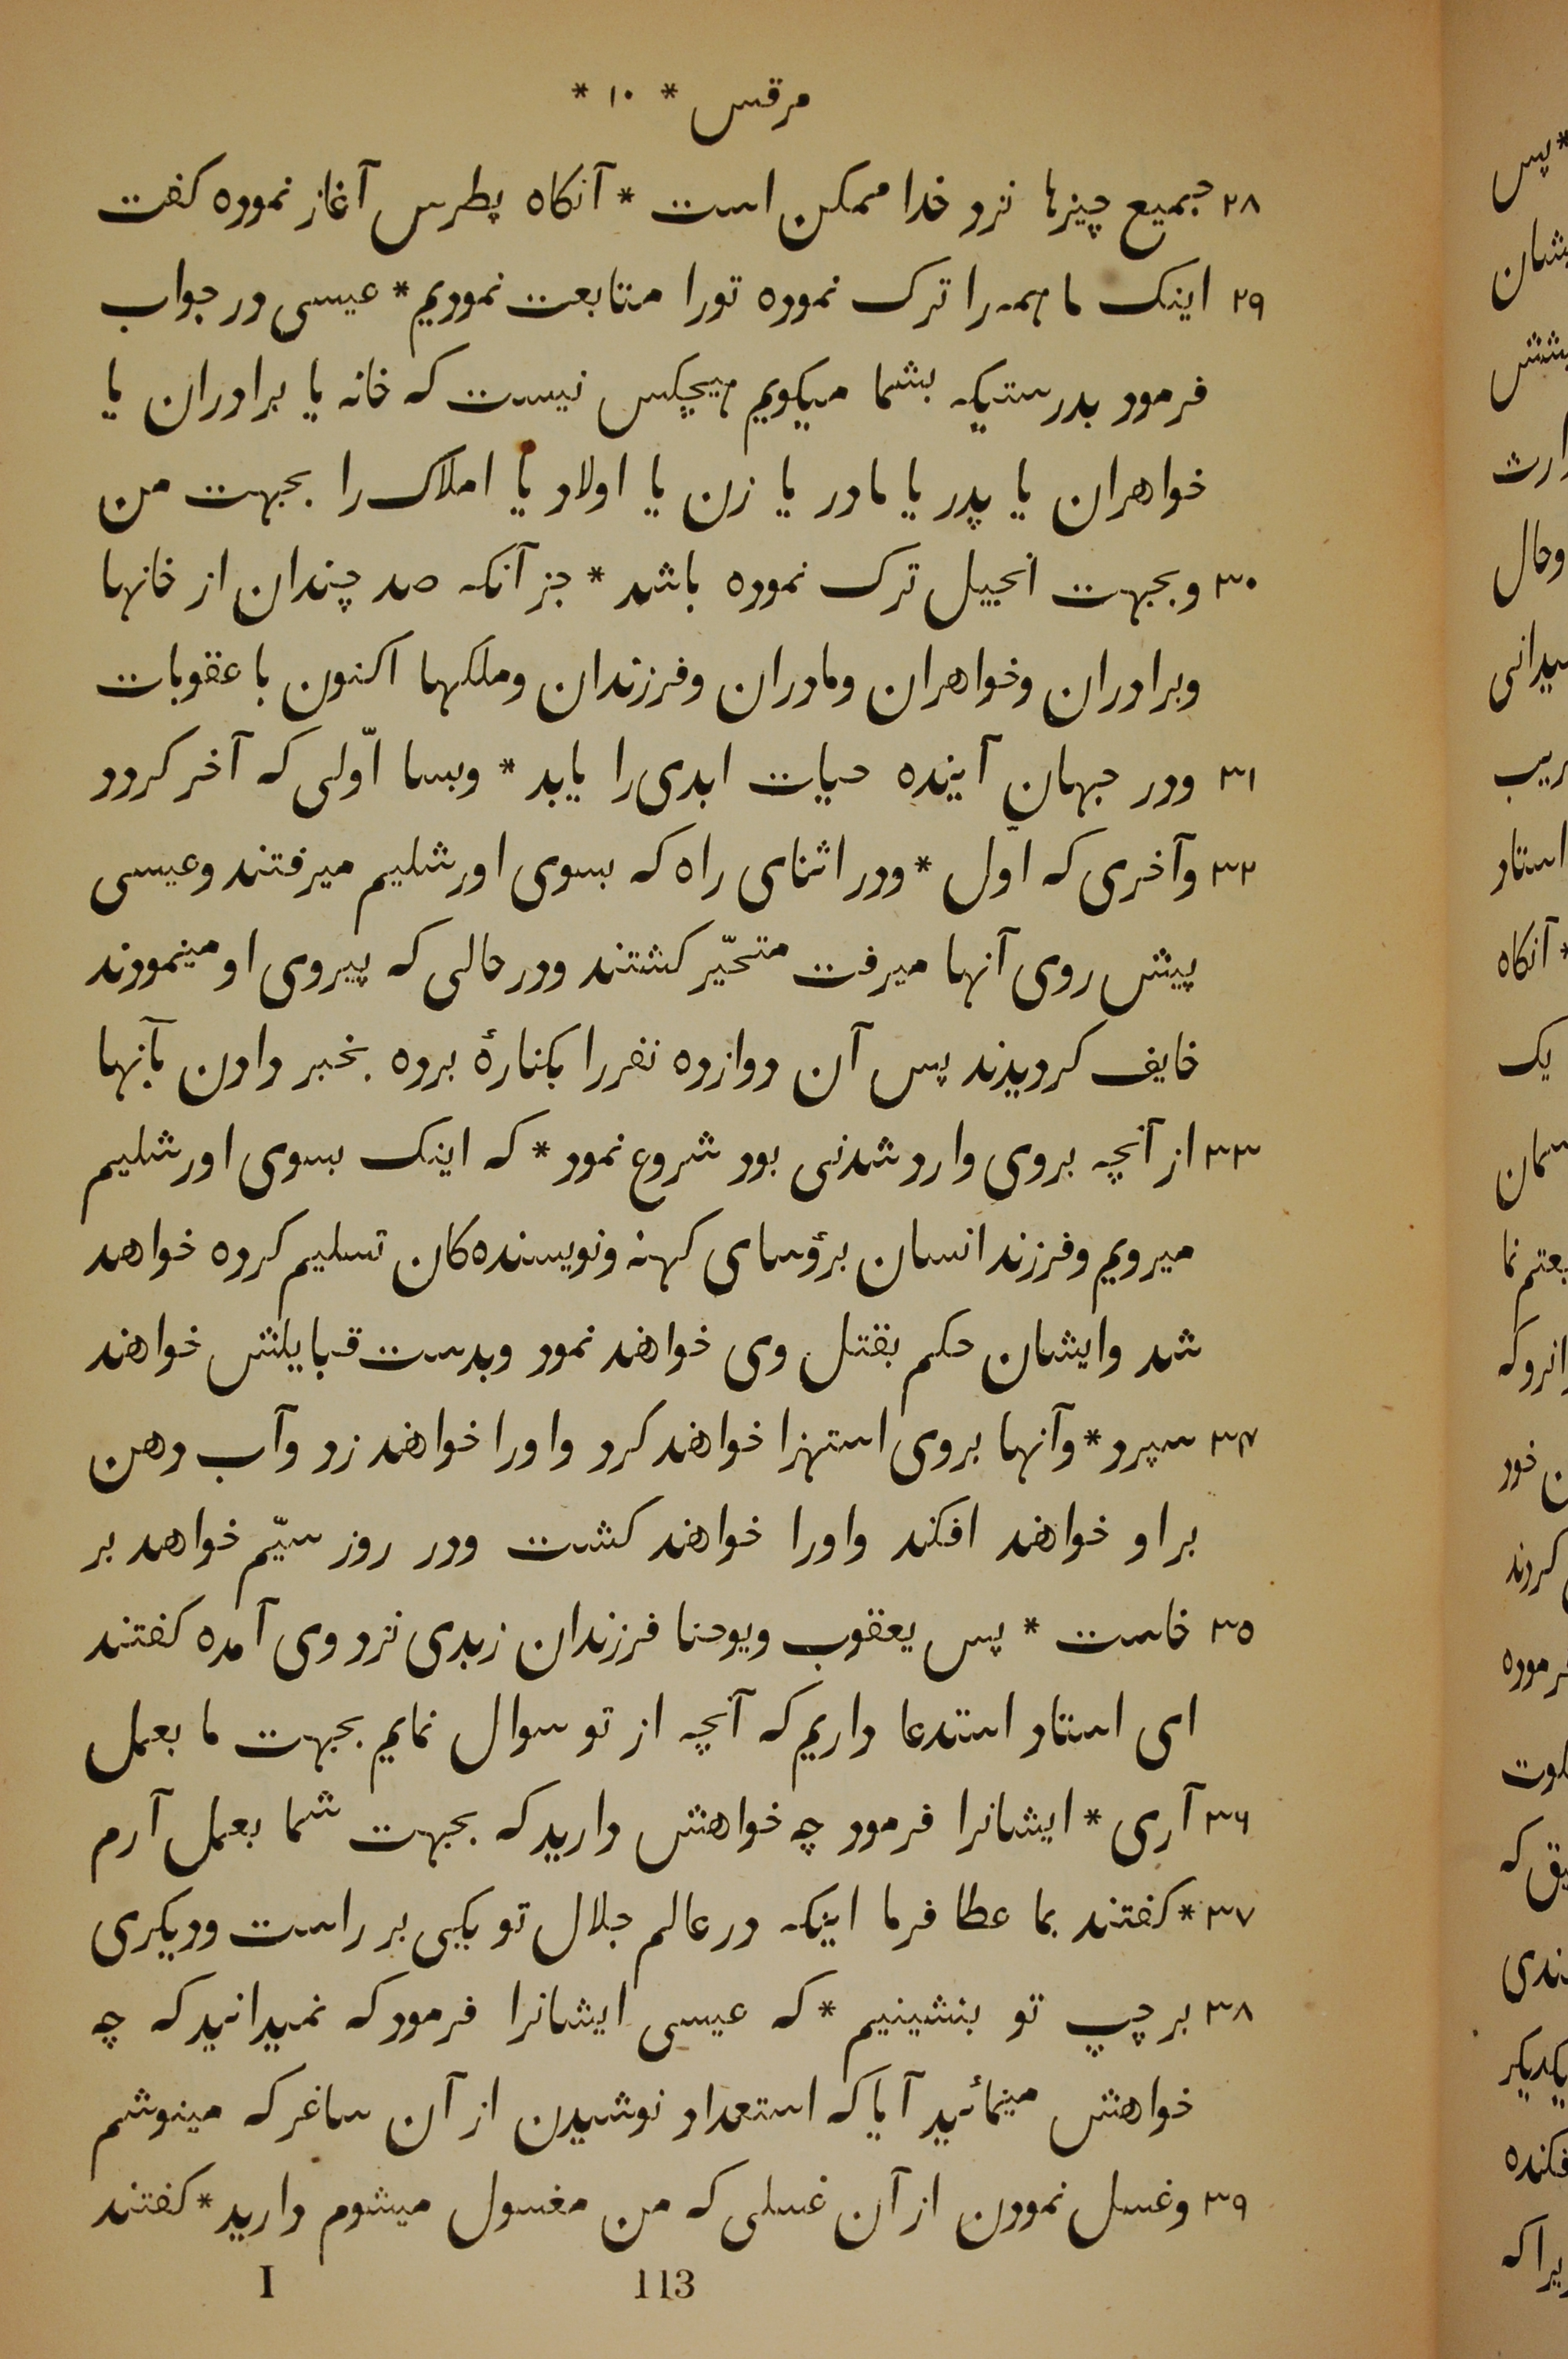 مرقس * ۱۰ *
۲۸ جمیع چیزها نزد خدا ممکن است * آنکاه پطرس آغاز نموده کفت
۲۹ اینک ما همه را ترک نموده تورا متابعت نمودیم * عیسی در جواب
فرمود بدرستیکه بشما میکویم هیچکس نیست که خانه یا برادران یا
خواهران یا پدر یا مادر یا زن یا اولاد یا املاک را بجهت من
۳۰ وبجهت انجیل ترک نموده باشد * جز آنکه صد چندان از خانها
وبرادران وخواهران ومادران وفرزندان وملکها اکنون با عقوبات
۳۱ ودر جهان آینده حیات ابدی را یابد * وبسا اوّلی که آخر کردد
۳۲ وآخری که اوّل * ودر اثنای راه که بسوی اورشلیم میرفتند وعیسی
پیش روی آنها میرفت متحیّر کشتند ودر حالی که پیروی او مینمودند
خایف کردیدند پس آن دوازده نفررا بکنارهٔ برده بخبر دادن بآنها
۳۳ از آنچه بروی وارد شدنی بود شروع نمود * که اینک بسوی اورشلیم
میرویم وفرزند انسان برؤسای کهنه ونویسنده‌کان تسلیم کرده خواهد
شد وایشان حکم بقتل وی خواهند نمود وبدست قبایلش خواهند
۳۴ سپرد * وآنها بروی استهزا خواهند کرد واورا خواهند زد وآب دهن
براو خواهند افکند واورا خواهند کشت ودر روز سیّم خواهد بر
۳۵ خاست * پس یعقوب ویوحنا فرزندان زبدی نزد وی آمده کفتند
ای استاد استدعا داریم که آنچه از تو سوال نمایم بجهت ما بعمل
۳۶ آری * ایشانرا فرمود چه خواهش دارید که بجهت شما بعمل آرم
۳۷ * کفتند بما عطا فرما اینکه در عالم جلال تو یکیی بر راست ودیکری
۳۸ بر چپ تو بنشینیم * که عیسی ایشانرا فرمود که نمیدانید که چه
خواهش مینمائید آیا که استعداد نوشیدن از آن ساغر که مینوشم
۳۹ وغسل نمودن از آن غسلی که من مغسول میشوم دارید * کفتند
I 113